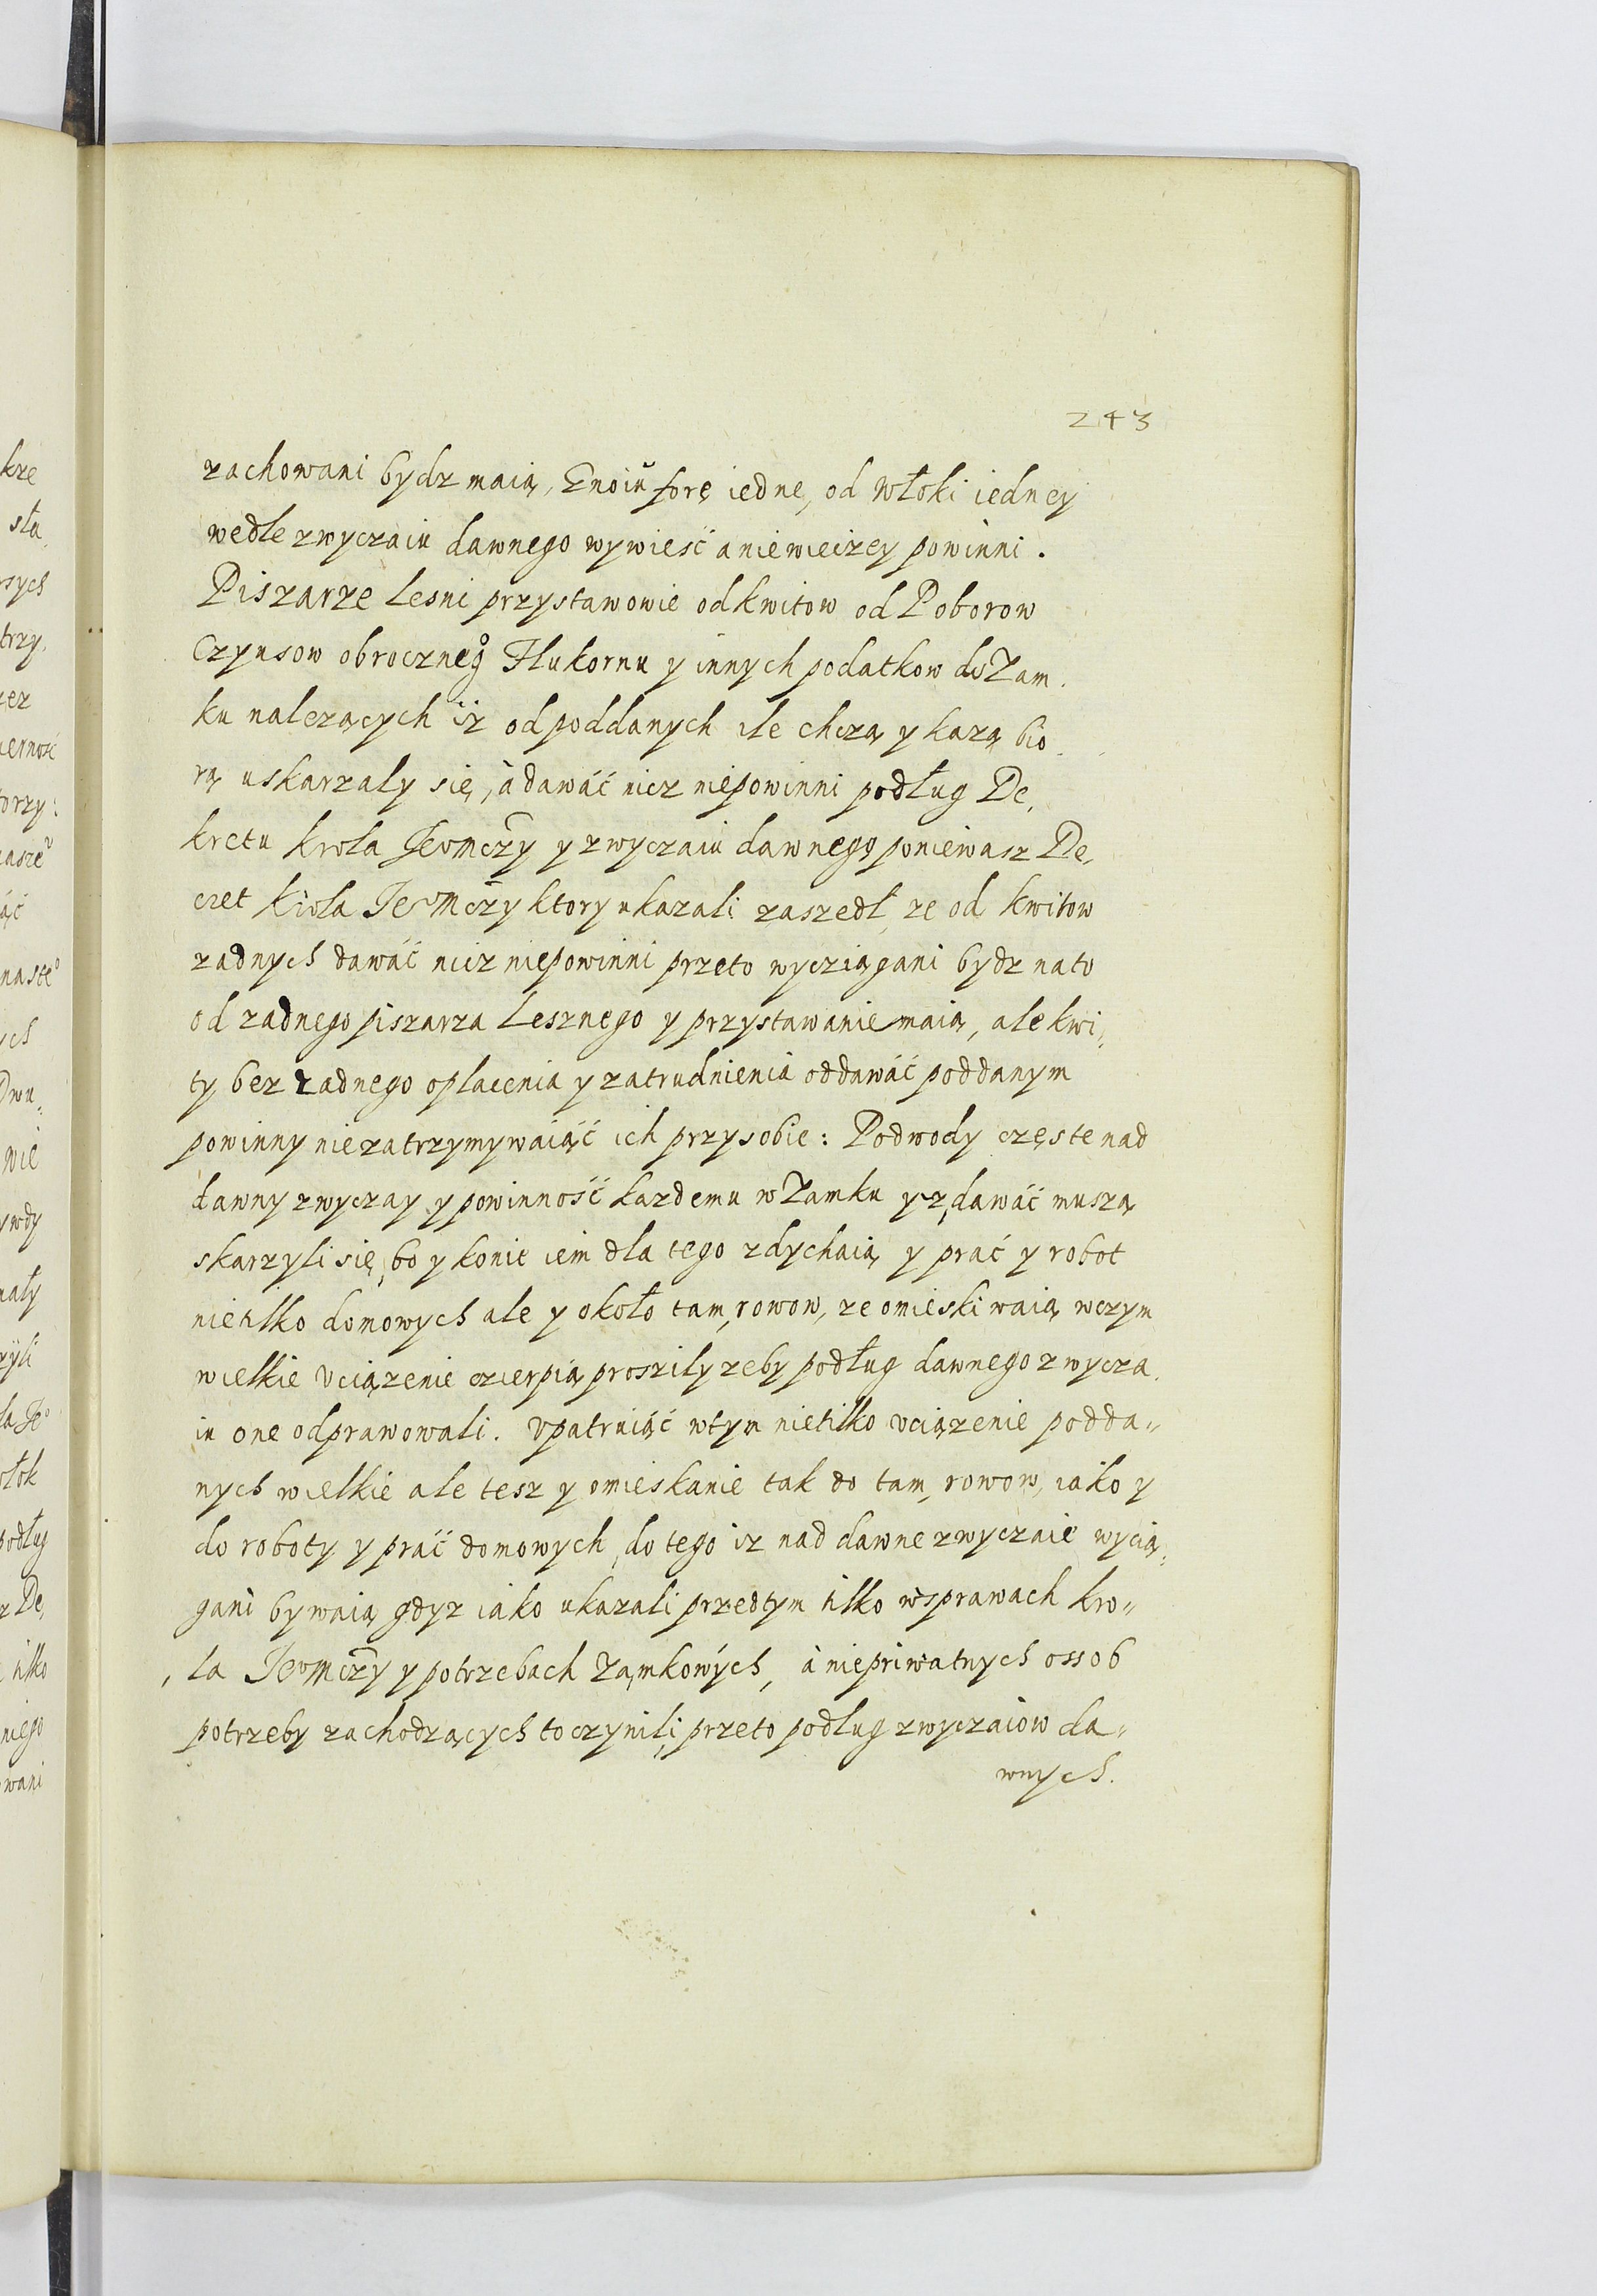 243
zachowani bydz maią, Gnoiu forę iedne, od Włoki iedney
wedle zwyczaiu dawnego wywieść a niewieczey powinni.
Piszarze Lesni przystawowie od kwitow od Poborow
Czynsow obroczne͛g Hukornu y innych podatkow do Zam,
ku nalezących iz od poddanych ile chczą y kazą bio,
rą uskarzaly się, à dawać nicz niepowinni podług De,
kretu krola Jeomczy y zwyczaiu dawnego poniewasz De,
cret krola Jeomczy ktory ukazali zaszedł, ze od kwitow
zadnych dawać nicz niepowinni przeto wyciągani bydz nato
od zadnego piszarza Lesznego y przystawanie maią, ale kwi,
ty bez zadnego oplacenia y zatrudnienia oddawać poddanym
powinny niezatrzymywaiąć ich przysobie: Podwody częste nad
dawny zwyczay y powinność kazdemu w Zamku yz, dawać muszą
skarzyli się, bo y konie iem dla tego zdychaią y prać y robot
nietilko domowych ale y około tam, rowow, ze omieskiwaią wczym
wielkie Uciązenie czierpią proszily zeby podług dawnego zwycza,
iu one odprawowali. Upatruiąć wtym nietilko uciązenie podda„
nych wielkie ale tesz y omieskanie tak do tam, rowow, iako y
do roboty y prać domowych, do tego iz nad dawne zwyczaie wycią„
gani bywaią gdyz iako ukazali przedtym tilko wsprawach kro„
la Jeomczy y potrzebach Zamkowych, à nieprìwatnych ossob
potrzeby zachodzących to czynili, przeto podlug zwyczaiow da„
wnych.